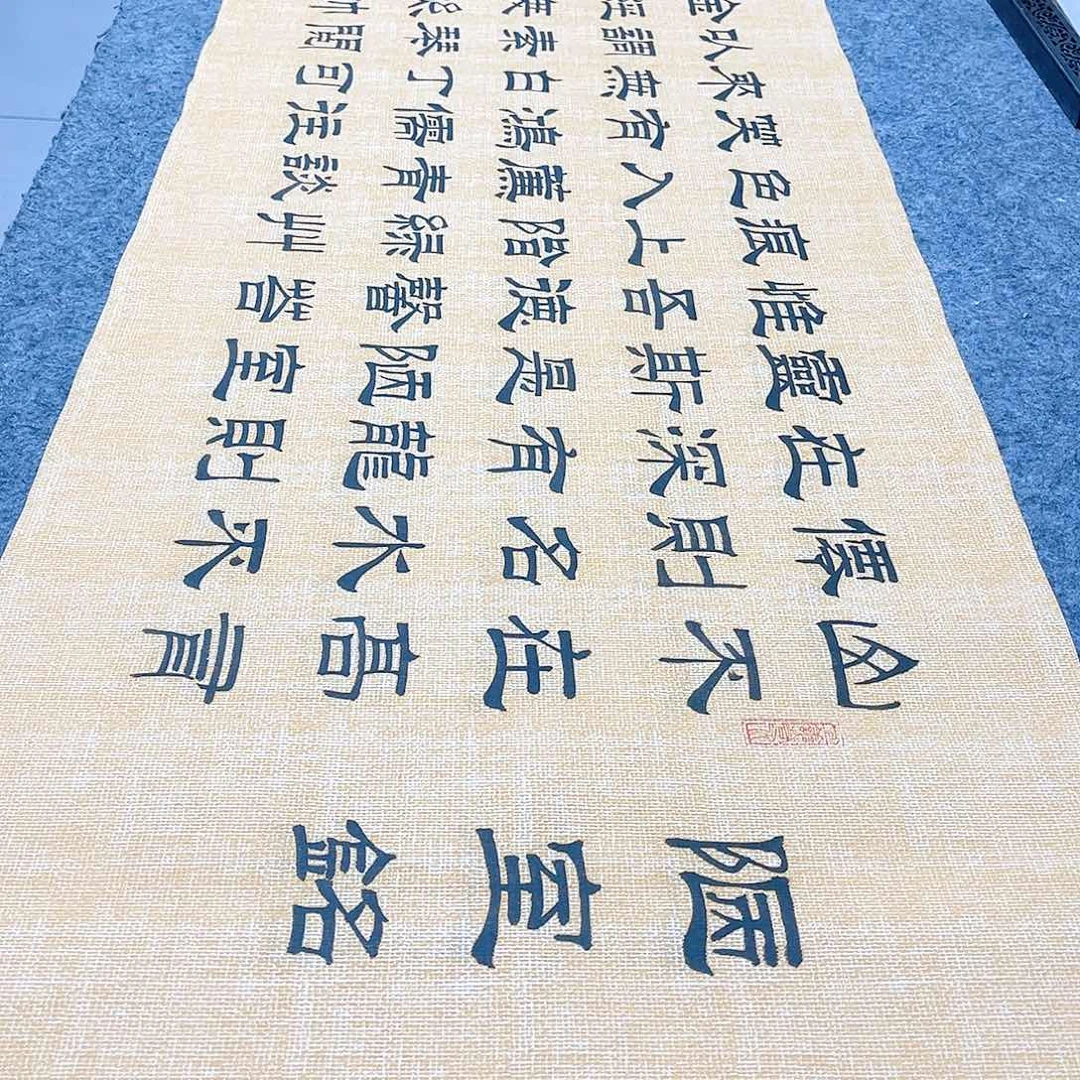 陋室銘
山不在高有
僊則名水不
在深有龍則
靈斯是陋室
惟吾德馨苔
痕上階綠艸
色入簾青談
笑有鴻儒往
來無白丁可
以調素琴閱
金經無絲竹